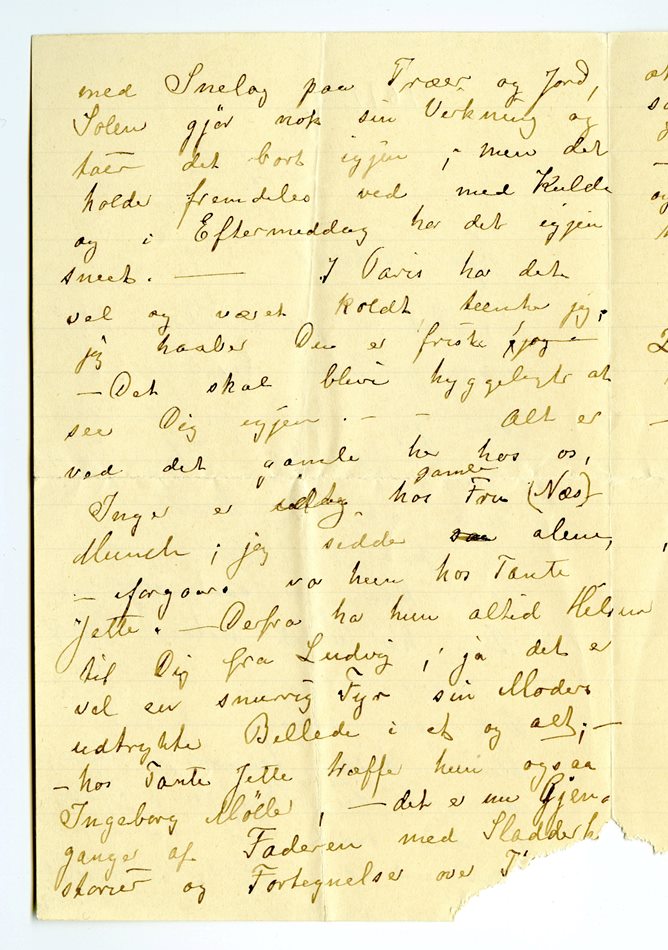 med Snelag paa Træer og Jord,
Solen gjør nok sin Virkning og
taer det bort igjen; men det
holder fremdeles ved med Kulde
og i Eftermeddag har det igjen
sneet. — I Paris har det
vel og været koldt, tænker jeg;
jeg haaber Du er frisk
— Det skal blive hyggeligt at
see Dig igjen. — — Alt er
ved det gamle her hos os,
Inger er hos gamle Fru (Næs)
Munch; jeg sidder alene,
— forgaars var hun hos Tante
Jette. — Derfra har hun altid Hilsen
til Dig fra Ludvig; ja det er
vel en snurrig Fyr sin Moders
udtrykte Billede i et og alt; —
— hos Tante Jette træffer hun ogsaa
Ingeborg Mölle, — det er en Gjen-
ganger af Faderen med Sladderh
storier og Fortegnelser over